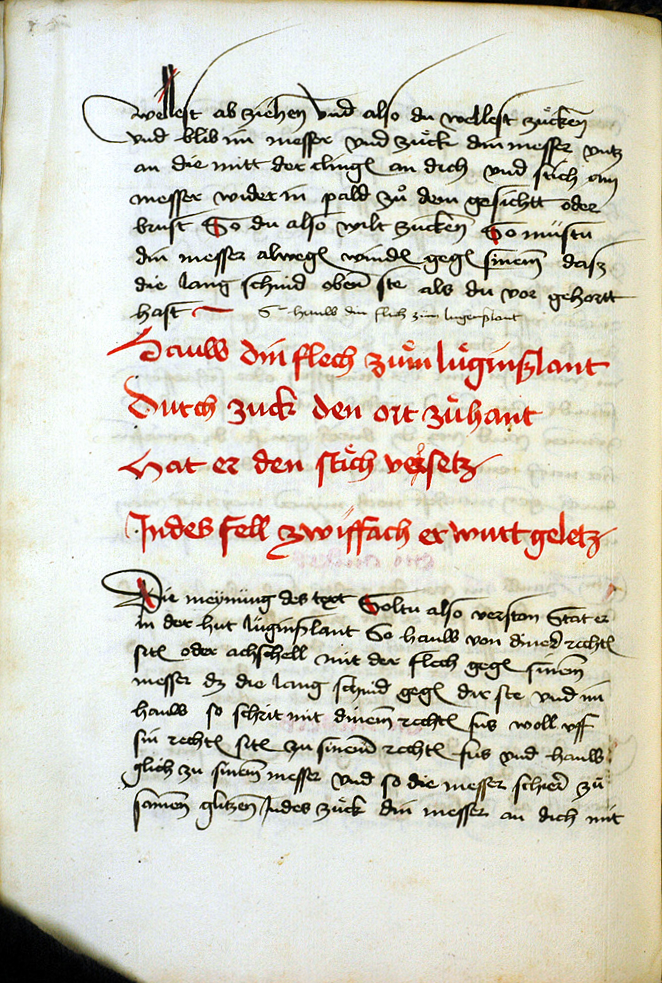 wellest ab ziehen vnd also du wellest zucken
vnd blib im messer vnd zuck din messer vntz
an die mitt der clingen an dich vnd stich am
messer wider in pald zů dem gesichtt oder
brust So du also wilt zucken So müstu
din messer alwegen winden gegen sinem das
die lang schnid oben ste als du vor gehortt
hast S hauw din flech zum luginslant
Hauw din flech zům lůginslant
Durch zuck den ort zůhant
Hat er den stäch versetz
Indes fell zwiffach er wirtt geletz
Die meynung des text Soltu also verston Stat er
in der hut lůginslant So hauw von diner rechten
siten oder achschell mit der flech gegen sinem
messer dz die lang schnid gegen dir ste vnd im
hauw so schrit mit dinem rechten fus woll vff
sin rechten siten zu sinem rechten fus vnd hauw
glich zu sinem messer vnd so die messer schier zů
samen glitzen Indes zuck din messer an dich mit